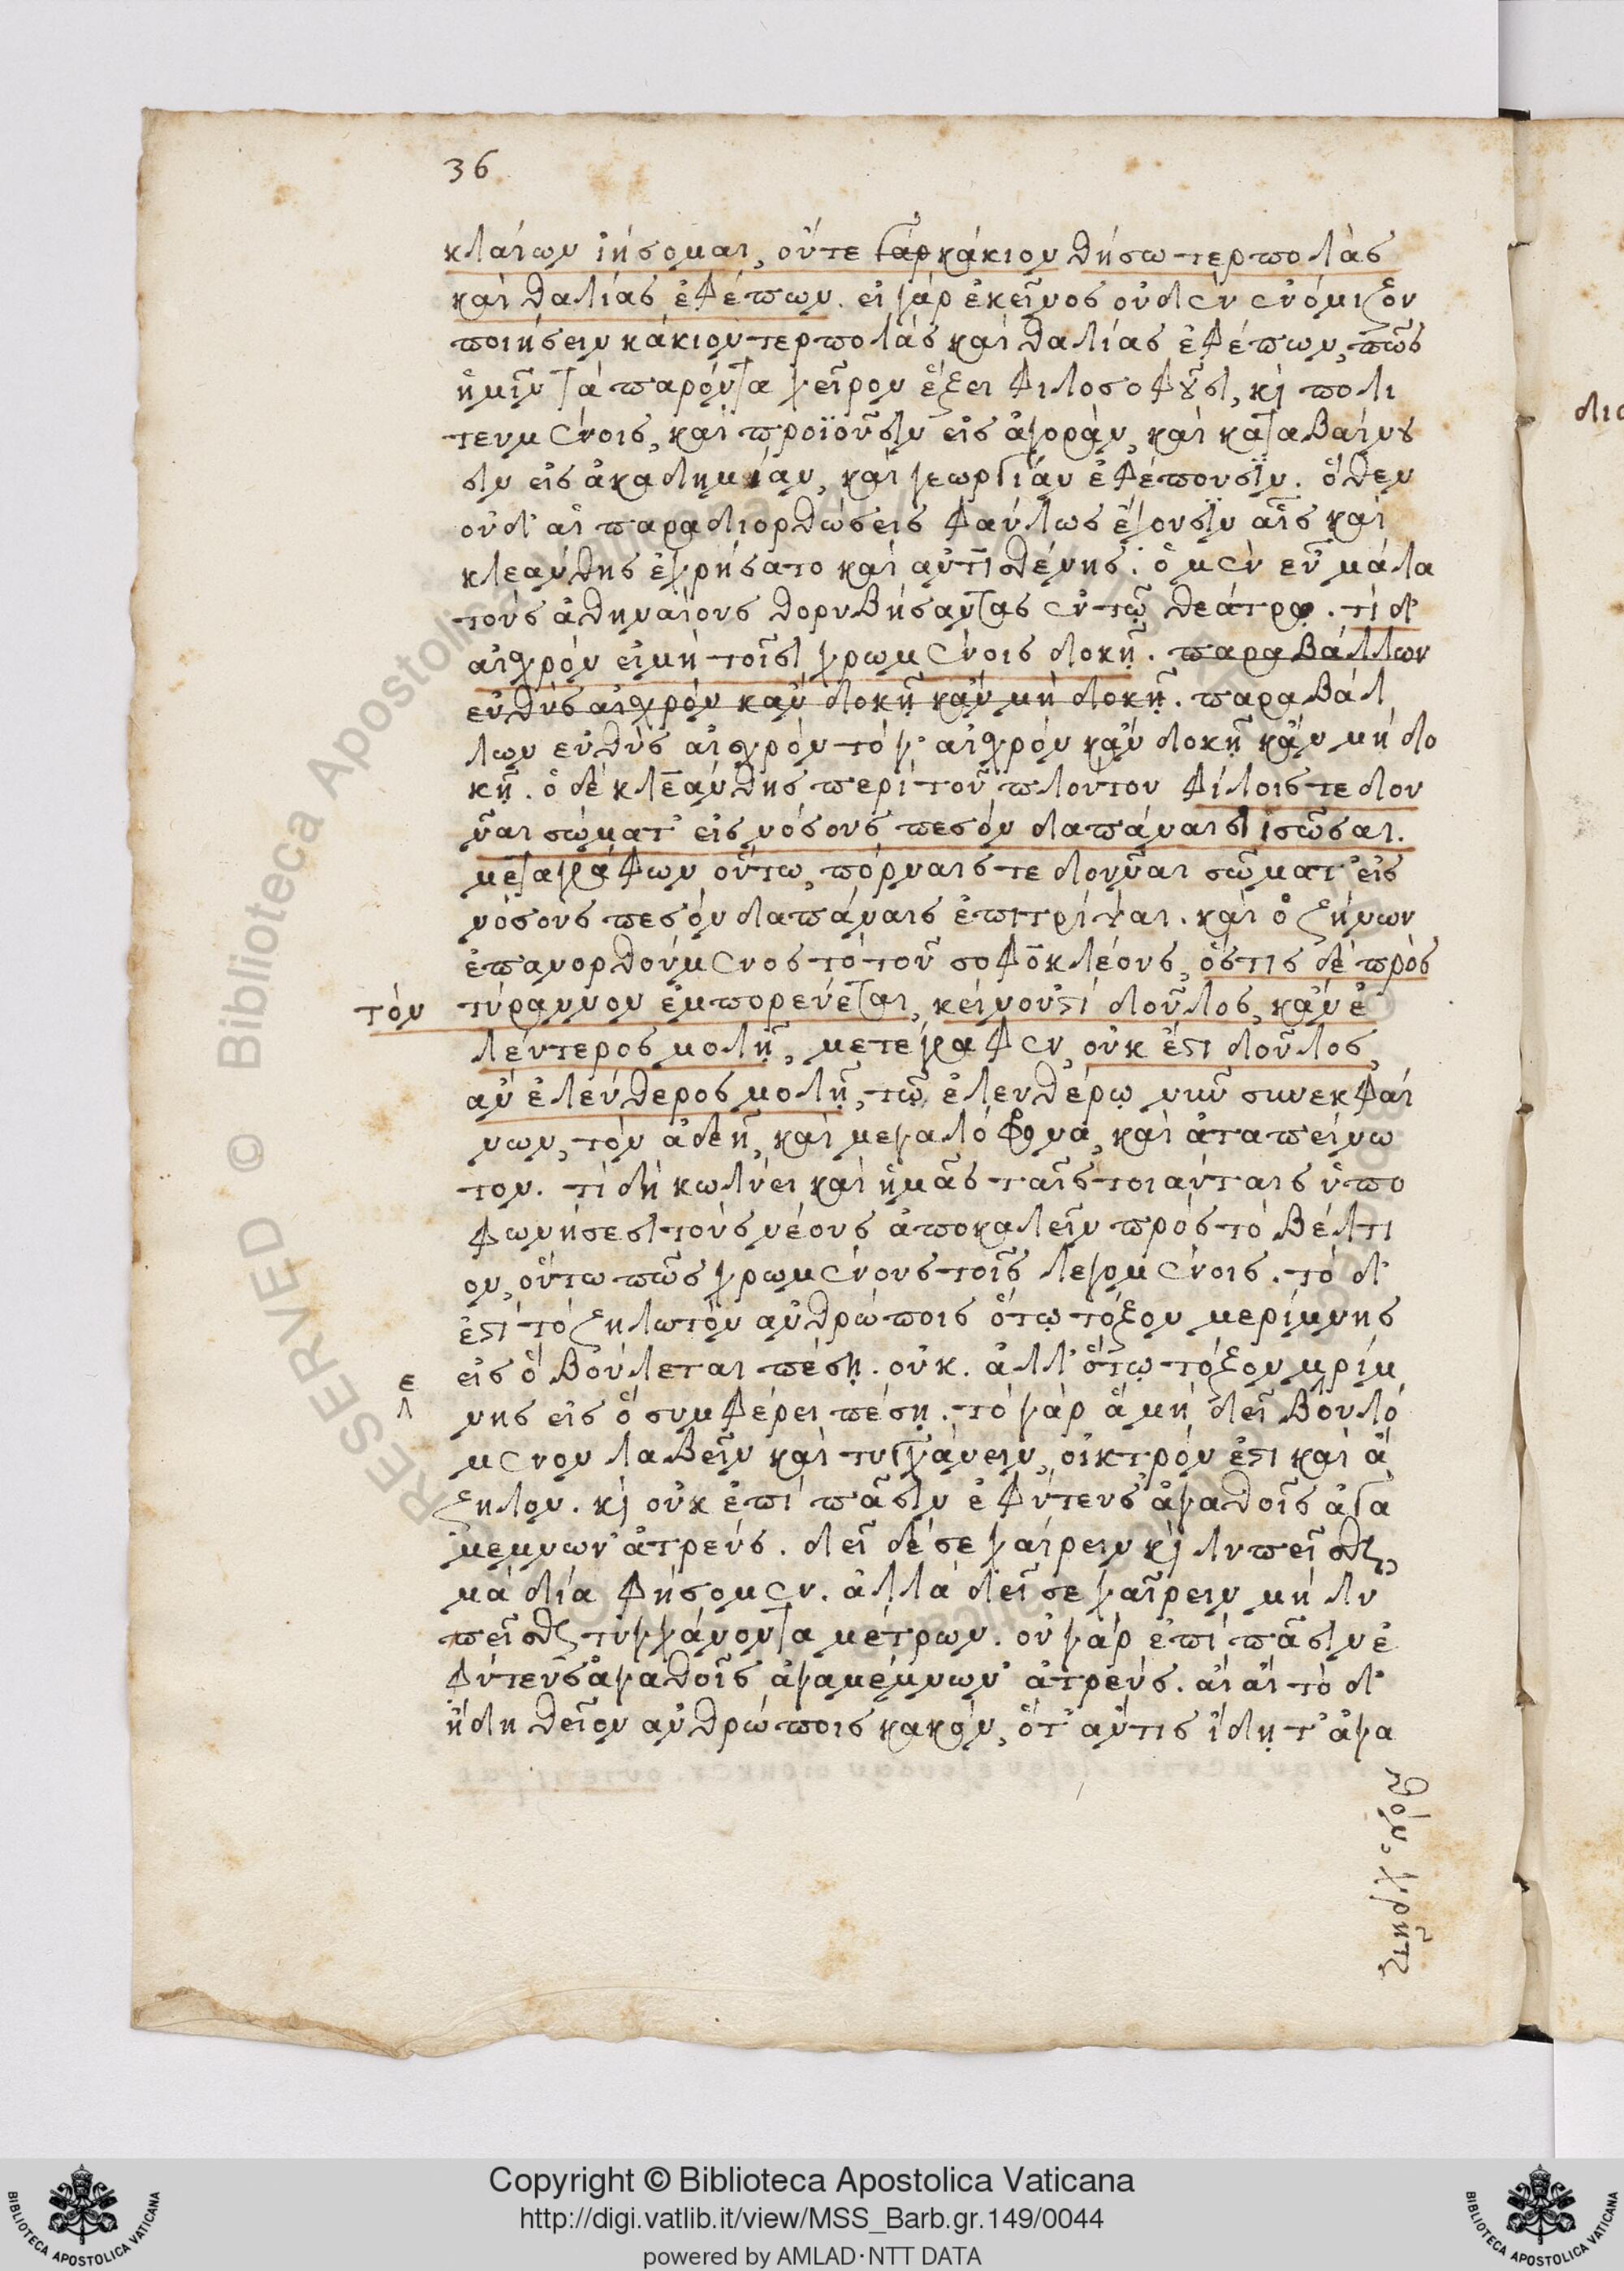 36
κλαίων ἰήσομαι, οὔτε γὰρ κάκιον θήσω τερπολὰς
καὶ θαλίας ἐφέπων. εἰ γὰρ ἐκεῖνος οὐδὲν ἐνόμιζον
ποιήσειν κάκιον τερπολὰς καὶ θαλίας ἐφέπων, πῶς
ἡμῖν τὰ παρόντα χεῖρον ἕξει φιλοσοφοῦσι, κὶ πολι
τευμένοις, καὶ προϊοῦσιν εἰς ἀγορὰν, καὶ καταβαίνου
σιν εἰς ἀκαδημίαν, καὶ γεωργίαν ἐφέπουσιν. ὅθεν
οὐδ' αἱ παραδιορθώσεις φαύλως ἔχουσιν αἷς καὶ
κλεάνθης ἐχρήσατο καὶ αντισθένης. ὁ μὲν εὖ μάλα
τοὺς ἀθηναίους θορυβήσαντας ἐν τῷ θεάτρῳ. τί δ'
αἰσχρόν εἰ μὴ τοῖσι χρωμένοις δοκῇ. παραβάλλων
εὐθὺς αἰσχρόν κἂν δοκῇ κἂν μὴ δοκῇ. παραβάλ
λων εὐθὺς αἰσχρόν τό γ' αἰσχρόν κἂν δοκῇ κἂν μή δο
κῇ. ὁ δὲ κλεάνθης περὶ τοῦ πλούτου φίλοις τε δου
ῦναι σώματ' εἰς νόσους πεσόν δαπάναισι σῶσαι.
μεταγράφων οὕτω, πόρναις τε δοῦναι σῶματ' εἰς
νόσους πεσόν δαπάναις ἐπιτρίψαι. καὶ ὁ ζήνων
ἐπανορθούμενος τὸ τοῦ σοφοκλέους, ὅστις δὲ πρὸς
τόν τύραννον ἐμπορεύεται, κείνου ἐστί δοῦλος, κἂν ἐ
λεύτερος μολῇ, μετέγραφεν, οὐκ ἔστι δοῦλος,
ἂν ἐλεύθερος μολῇ, τῷ ἐλευθέρῳ νῦν συνεκφαί
νων, τόν ἀδεῆ, καὶ μεγαλόφρονα, καὶ ἀταπείνω
τον. τί δὴ κωλύει καὶ ἡμᾶς ταῖς τοιαύταις ὑπο
φωνήσεσι τοὺς νέους ἀποκαλεῖν πρός τό βέλτι
ον, οὕτω πῶς χρωμένους τοῖς λεγομένοις. τό δ'
ἐστί τό ζηλωτόν ανθρώποις ὅτῳ τόξον μερίμνης
εἰς ὃ βούλεται πέσῃ. οὐκ. ἀλλ' ὅτῳ τόξον μρίμ
ε
νης εἰς ὃ συμφέρει πέσῃ. τό γὰρ ἅ μή δεῖ βουλό
μενον λαβεῖν καὶ τυγχάνειν, οἰκτρόν ἐστι καὶ ἄ
ζηλον. κὶ οὐκ ἐπί πᾶσιν ἐφύτευσ' ἀγαθοῖς ἀγα
μεμνων' ἀτρεύς. δεῖ δέ σε χαίρειν κὶ λυπεῖσθαι,
μά δία φήσομεν. ἀλλά δεῖ σε χαῖρειν μή λυ
πεῖσθαι τυγχάνοντα μέτρων. οὐ γάρ ἐπί πᾶσιν ἐ
φύτευσ' ἀγαθοῖς ἀγαμέμνων' ἀτρεύς. αἴ αἴ τό δ'
ἤδη θεῖον ανθρώποις κακόν, ὅτ' αὖτις ἴδῃ τ' ἀγα
θόν, χρῆται